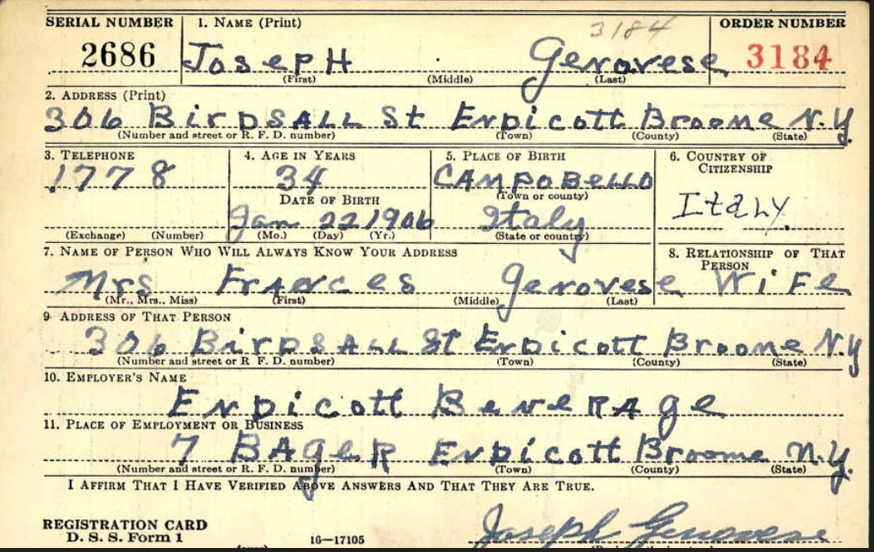 SERIAL NUMBER 1. NAME (Print) 3184 ORDER NUMBER
2686 Joseph Genovese 3184
(First) (Middle) (Last)
2. ADDRESS (Print)
306 BirDsALL St EnDicott Broome N.Y.
(Number and street or R. F. D. number) (Town) (County) (State)
3. TELEPHONE 4. AGE IN YEARS 5. PLACE OF BIRTH 6. COUNTRY OF CITIZENSHIP
1778 34 CAMPOBELLO
DATE OF BIRTH (Town or county) ItaLY.
Jan 22 1906 Italy
(Exchange) (Number) (Mo.) (Day) (Yr.) (State or country)
7. NAME OF PERSON WHO WILL ALWAYS KNOW YOUR ADDRESS 8. RELATIONSHIP OF THAT PERSON
Mrs Frances Genovese WiFe
(Mr., Mrs., Miss) (First) (Middle) (Last)
9 ADDRESS OF THAT PERSON
306 BirDsALL St EnDicott Broome N.Y
(Number and street or R. F. D. number) (Town) (County) (State)
10. EMPLOYER'S NAME
EnDicott BeveRAge
11. PLACE OF EMPLOYMENT OR BUSINESS
7 BAgeR EnDicott Broome N.Y.
(Number and street or R. F. D. number) (Town) (County) (State)
I AFFIRM THAT I HAVE VERIFIED ABOVE ANSWERS AND THAT THEY ARE TRUE.
REGISTRATION CARD
D. S. S. Form 1 16—17105 Joseph Genovese